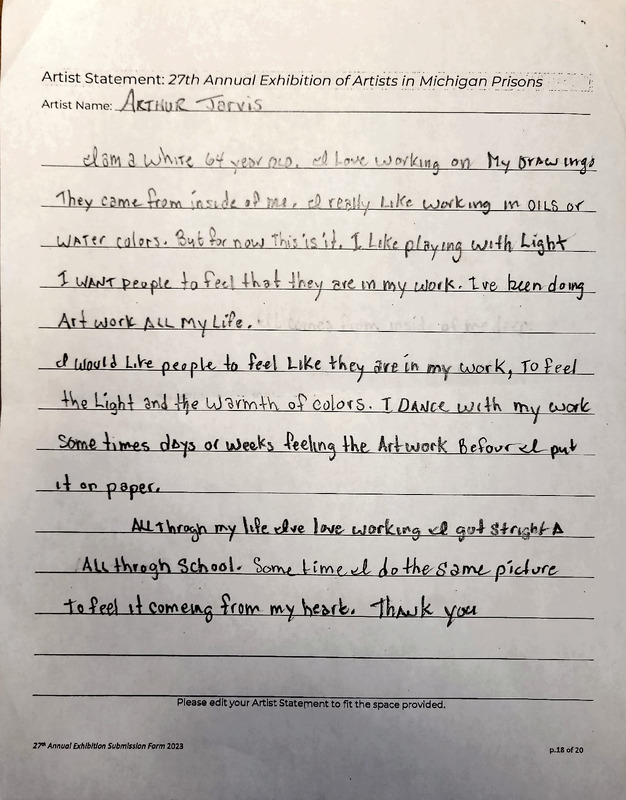 Artist Statement: 27th Annual Exhibition of Artists in Michigan Prisons
Artist Name: ARTHUR Jarvis
I am a White 64 year old. I Love working on My Drawings
They came from inside of me. I really Like working in OILS or
WATER colors. But for now This is it. I Like playing with Light
I WANT people to feel that they are in my work. Ive been doing
Art work ALL My Life.
I would Like people to feel Like they are in my work, To feel
the Light and the Warmth of colors. I DANCE with my work
Some times days or weeks feeling the Artwork Befour I put
it on paper.
ALL Throgh my life Ive love working I got Stright A
ALL throgh School. Some time I do the Same picture
To feel it comeing from my heart. Thank you
Please edit your Artist Statement to fit the space provided.
27th Annual Exhibition Submission Form 2023
p.18 of 20